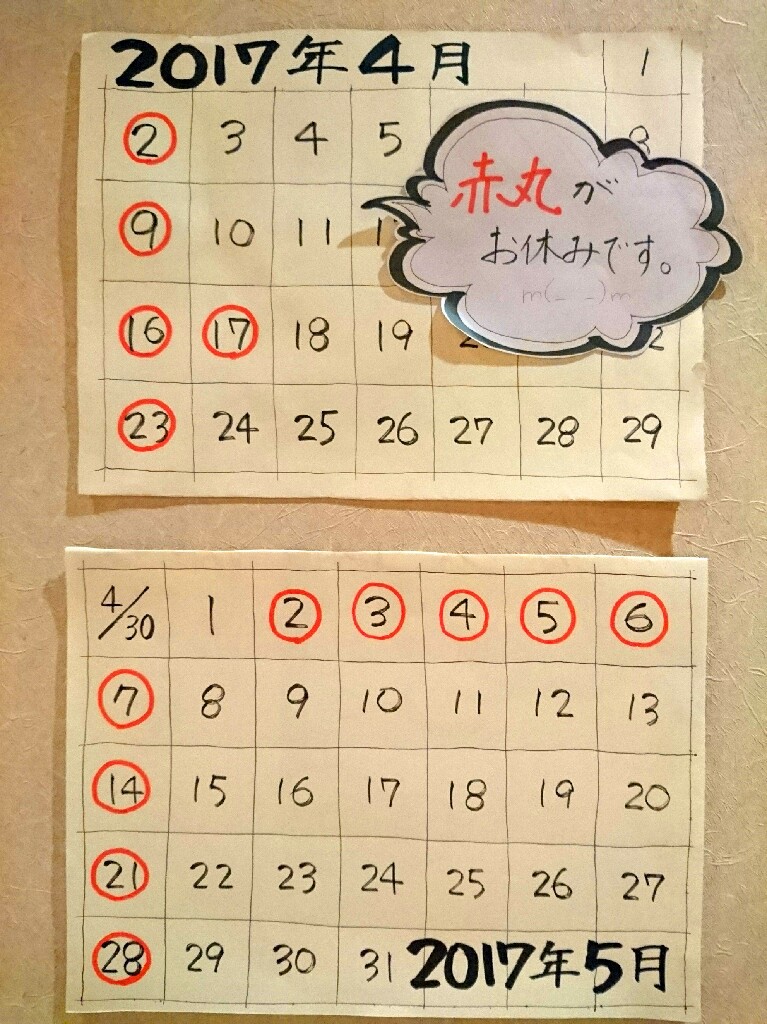 2017年4月 1
2 3 4 5
9 10 11
16 17 18 19
23 24 25 26 27 28 29
赤丸が
お休みです。
m(_ _)m
4/30 1 2 3 4 5 6
7 8 9 10 11 12 13
14 15 16 17 18 19 20
21 22 23 24 25 26 27
28 29 30 31 2017年5月